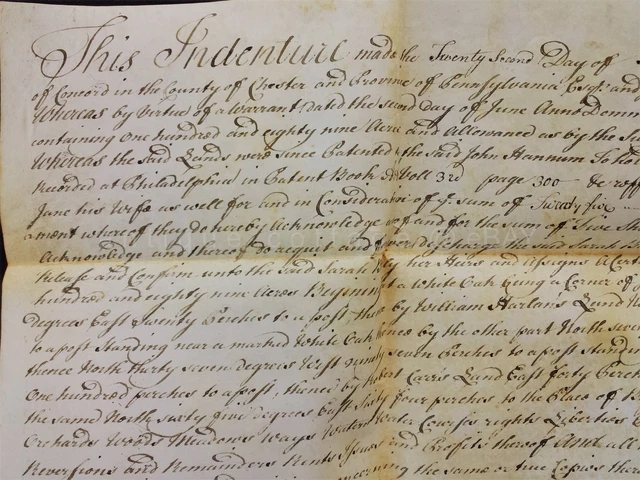 This Indenture made the Twenty Second Day of
of Concord in the County of Chester and Province of Pennsylvania Esqr. and
Whereas by Virtue of a Warrant Dated the second Day of June Anno Domini
containing One hundred and eighty nine Acres and Allowance as by the
Whereas the said Lands were since Patented the said John Hannum To hold
Recorded at Philadelphia in Patent Book Voll 3rd page 300
Jane his Wife as well for and in Consideration of ye. sum of Twenty five
ament whereof they do hereby Acknowledge and for the sum of Five
Acknowledge and thereof do acquit and discharge the said Sarah
Release and Confirm unto the said Sarah her Heirs and Assigns a
hundred and eighty nine Acres a White Oak being a Corner of
degrees East Twenty Perches to a post by William Harlan's Land
to a post standing near a marked White Oak thence by the other part North
thence North thirty seven degrees West ninety seven Perches to a post
One hundred perches to a post, thence by Land East forty Perches
the same North sixty five degrees East sixty four perches to the Place of
Orchards Woods Meadows Ways Waters Water Courses rights Liberties
Reversions and Remainders Rents Issues and Profits thereof And
the same or true Copies